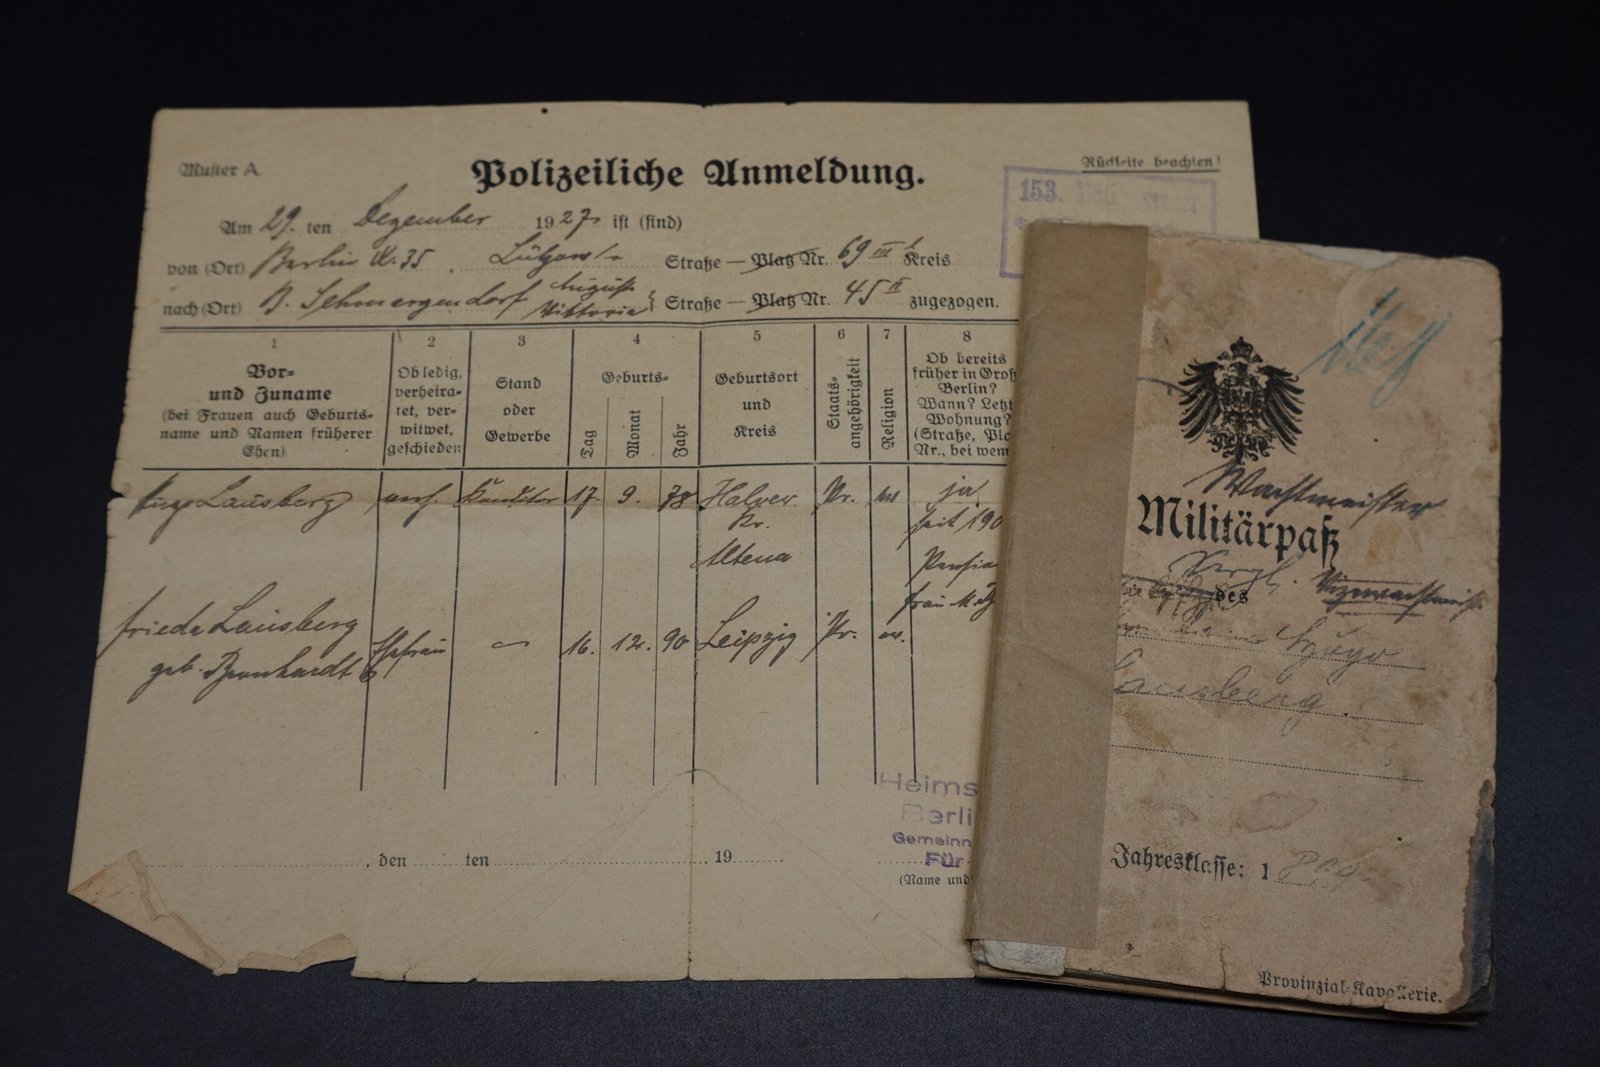 Muster A.
Polizeiliche Anmeldung.
Rückseite beachten!
153.
Am 29. ten Dezember 1927 ist (sind)
von (Ort) Berlin W. 35, Lützowstr Straße — Platz Nr. 69 III Kreis
nach (Ort) B. Schmargendorf Auguste Viktoria Straße — Platz Nr. 45 II zugezogen.
1 2 3 4 5 6 7 8
Vor-
und Zuname
(bei Frauen auch Geburts-
name und Namen früherer
Ehen)
Ob ledig,
verheira-
tet, ver-
witwet,
geschieden
Stand
oder
Gewerbe
Geburts-
Tag
Monat
Jahr
Geburtsort
und
Kreis
Staats-
angehörigkeit
Religion
Ob bereits
früher in Groß
Berlin?
Wann? Letzt
Wohnung?
(Straße, Pla
Nr., bei wem
Hugo Lausberg verh. Konditor 17. 9. 78 Halver Pr. ev ja
Kr. seit 190
Altena
frau
Frieda Lausberg
geb. Bernhardt Ehefrau — 16. 12. 90 Leipzig Pr. ev.
, den ten 19
Heims
Berli
Gemeinn
Für
(Name und
Wachtmeister
Militärpaß
des Vizewachtmeister
Hugo
Lausberg.
Jahresklasse: 1899
Provinzial-Kavallerie.